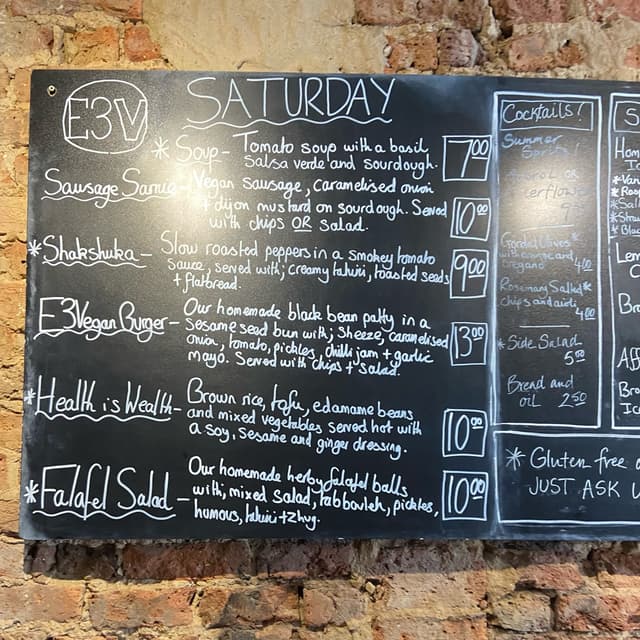 E3V
SATURDAY
* Soup - Tomato soup with a basil
salsa verde and sourdough.
7.00
Sausage Sarnie - Vegan sausage, caramelised onion
+ dijon mustard on sourdough. Served
with chips OR salad.
10.00
* Shakshuka - Slow roasted peppers in a smokey tomato
sauce, served with; creamy tahini, toasted seeds
+ flatbread.
9.00
E3Vegan Burger - Our homemade black bean patty in a
sesame seed bun with; sheeze, caramelised
onion, tomato, pickles, chilli jam + garlic
mayo. Served with chips + salad.
13.00
* Health is Wealth - Brown rice, tofu, edamame beans
and mixed vegetables served hot with
a soy, sesame and ginger dressing.
10.00
* Falafel Salad - Our homemade herby falafel balls
with, mixed salad, tabbouleh, pickles,
humous, tahini + zhug.
10.00
Cocktails!
Summer
Spritz!
Aperol or
9
Gordal Olives*
with orange and
oregano 4.00
Rosemary Salted*
chips and aioli
4.00
* Side Salad
5.00
Bread and
oil 2.50
* Gluten free
JUST ASK
S
Hom
* Van
* Salt
* Stra
Lem
Bro
Aff
Bro